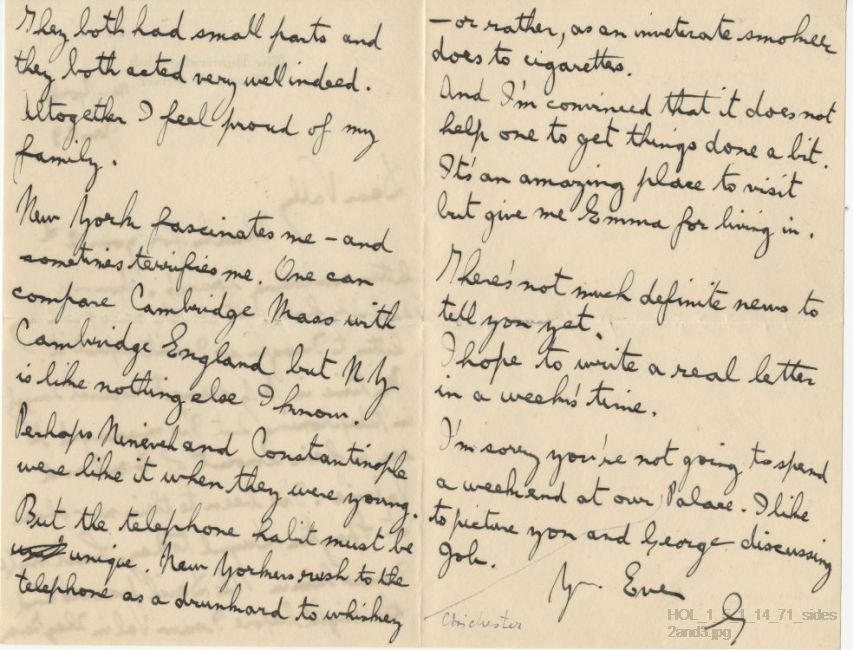 They both had small parts and
they both acted very well indeed.
Altogether I feel proud of my
family.
New York fascinates me – and
sometimes terrifies me. One can
compare Cambridge Mass with
Cambridge England but N Y
is like nothing else I know.
Perhaps Nineveh and Constantinople
were like it when they were young.
But the telephone habit must be
unique. New Yorkers rush to the
telephone as a drunkard to whiskey
– or rather, as an inveterate smoker
does to cigarettes.
And I'm convinced that it does not
help one to get things done a bit.
It's an amazing place to visit
but give me Emma for living in.
There's not much definite news to
tell you yet.
I hope to write a real letter
in a week's time.
I'm sorry you're not going to spend
a weekend at our Palace. I like
to picture you and George discussing
Job.
Yr. Ever
G
Chichester
HOL_1_5_1_14_71_sides
2and3.jpg